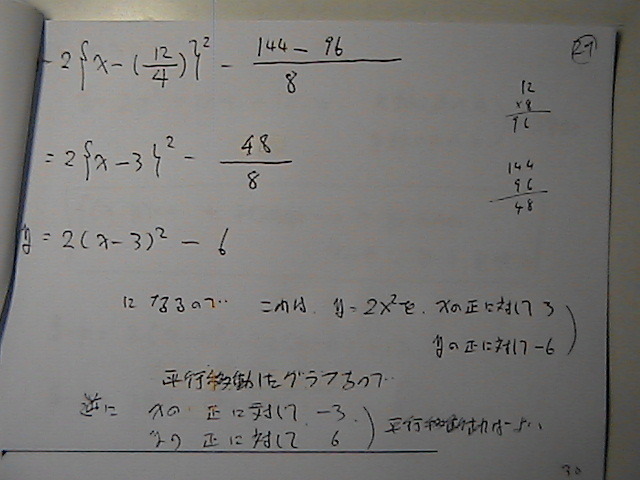 = 2{x-(12/4)}² - (144-96)/8
29
12
×8
96
= 2{x-3}² - 48/8
144
96
48
y = 2(x-3)² - 6
になるので… これは、y=2x²を、xの正に対して3
yの正に対して-6
平行移動したグラフなので…
逆に xの 正に対して -3
yの 正に対して 6
平行移動すればよい
30